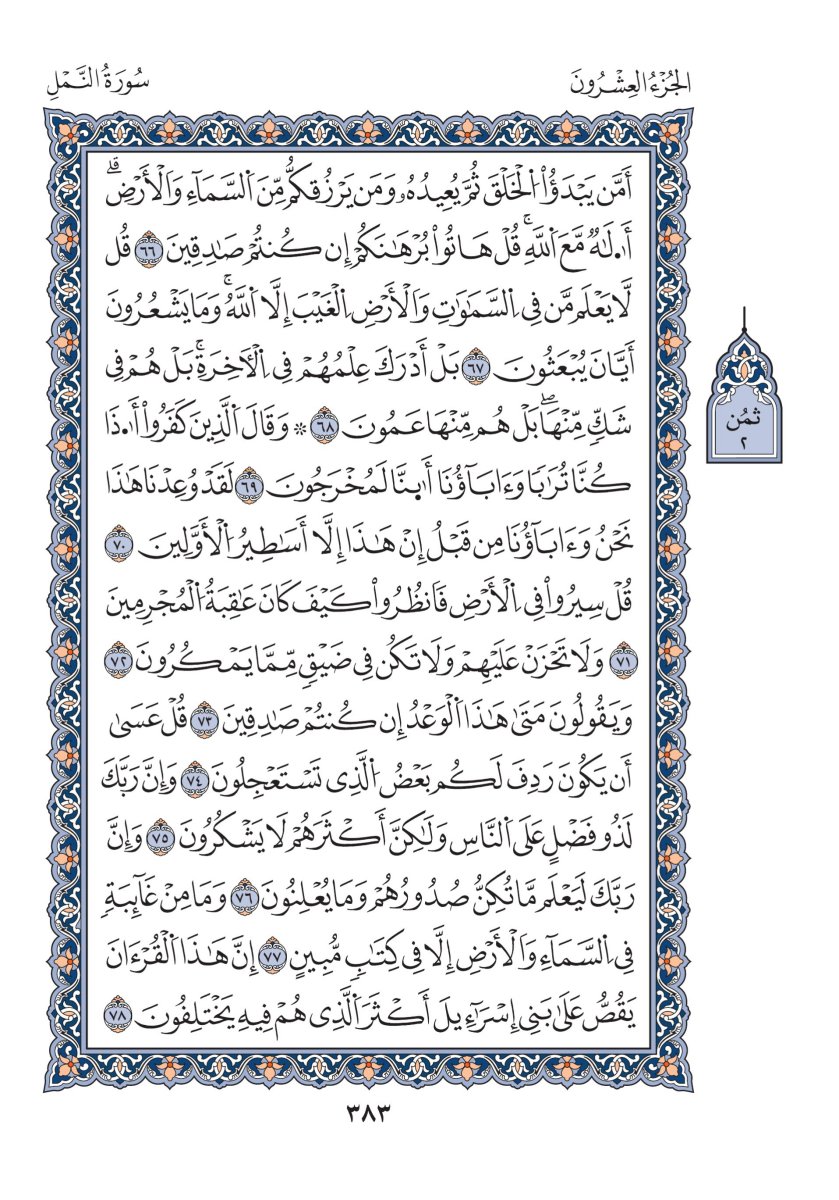 الجُزْءُ العِشْرُونَ
سُورَةُ النَّمْلِ
أَمَّن يَبْدَؤُا۟ اُ۬لْخَلْقَ ثُمَّ يُعِيدُهُۥ وَمَن يَرْزُقُكُم مِّنَ اَ۬لسَّمَآءِ وَالْأَرْضِۗ
أَ۬لَٰهٌ مَّعَ اَ۬للَّهِۚ قُلْ هَاتُوا۟ بُرْهَٰنَكُمْ إِن كُنتُمْ صَٰدِقِينَ ٦٦ قُل
لَّا يَعْلَمُ مَن فِي اِ۬لسَّمَٰوَٰتِ وَالْأَرْضِ اِ۬لْغَيْبَ إِلَّا اَ۬للَّهُۚ وَمَا يَشْعُرُونَ
أَيَّانَ يُبْعَثُونَ ٦٧ بَلْ أَدْرَكَ عِلْمُهُمْ فِي اِ۬لْأٓخِرَةِۚ بَلْ هُمْ فِي
شَكٍّ مِّنْهَاۖ بَلْ هُم مِّنْهَا عَمُونَ ٦٨ ۞ وَقَالَ اَ۬لَّذِينَ كَفَرُوا۟ أَ۬ذَا
كُنَّا تُرَٰبًا وَءَابَآؤُنَا أَ۬ىِٕنَّا لَمُخْرَجُونَ ٦٩ لَقَدْ وُعِدْنَا هَٰذَا
نَحْنُ وَءَابَآؤُنَا مِن قَبْلُ إِنْ هَٰذَا إِلَّا أَسَٰطِيرُ اُ۬لْأَوَّلِينَ ٧٠
قُلْ سِيرُوا۟ فِي اِ۬لْأَرْضِ فَانظُرُوا۟ كَيْفَ كَانَ عَٰقِبَةُ اُ۬لْمُجْرِمِينَ
٧١ وَلَا تَحْزَنْ عَلَيْهِمْ وَلَا تَكُن فِي ضَيْقٍ مِّمَّا يَمْكُرُونَ ٧٢
وَيَقُولُونَ مَتَىٰ هَٰذَا اَ۬لْوَعْدُ إِن كُنتُمْ صَٰدِقِينَ ٧٣ قُلْ عَسَىٰ
أَن يَكُونَ رَدِفَ لَكُم بَعْضُ اُ۬لَّذِي تَسْتَعْجِلُونَ ٧٤ وَإِنَّ رَبَّكَ
لَذُو فَضْلٍ عَلَى اَ۬لنَّاسِ وَلَٰكِنَّ أَكْثَرَهُمْ لَا يَشْكُرُونَ ٧٥ وَإِنَّ
رَبَّكَ لَيَعْلَمُ مَا تُكِنُّ صُدُورُهُمْ وَمَا يُعْلِنُونَ ٧٦ وَمَا مِنْ غَآئِبَةٍ
فِي اِ۬لسَّمَآءِ وَالْأَرْضِ إِلَّا فِي كِتَٰبٍ مُّبِينٍ ٧٧ إِنَّ هَٰذَا اَ۬لْقُرْءَانَ
يَقُصُّ عَلَىٰ بَنِي إِسْرَآءِيلَ أَكْثَرَ اَ۬لَّذِي هُمْ فِيهِ يَخْتَلِفُونَ ٧٨
ثُمُن
٢
٣٨٣